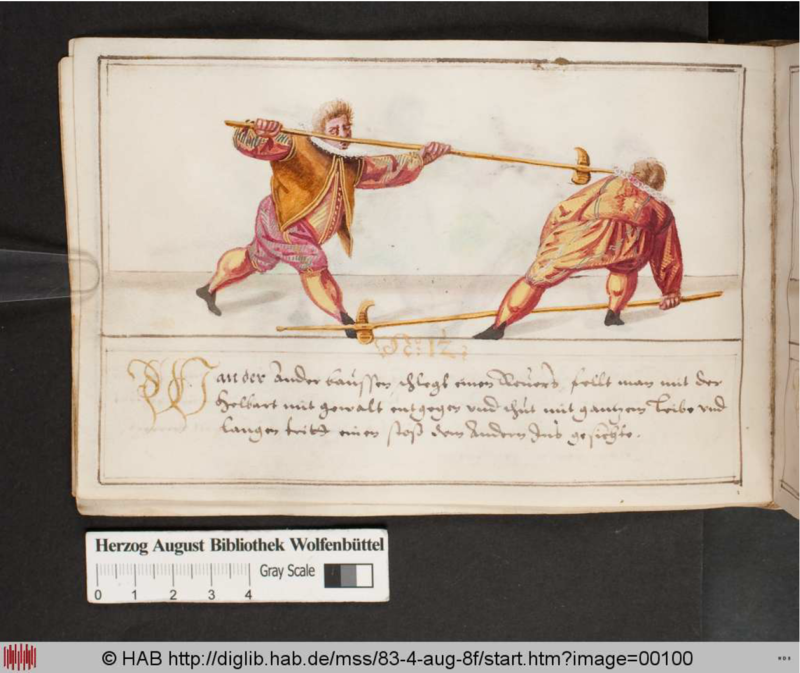 Wan der Ander baussen schlegt einen Reuers, fellt man mit der
Helbart mit gewalt entgegen vnd thut mit gantzem Leibe vnd
langen tritt einen stoß dem Andern Ins gesichte.
Herzog August Bibliothek Wolfenbüttel
Gray Scale
0 1 2 3 4
© HAB http://diglib.hab.de/mss/83-4-aug-8f/start.htm?image=00100